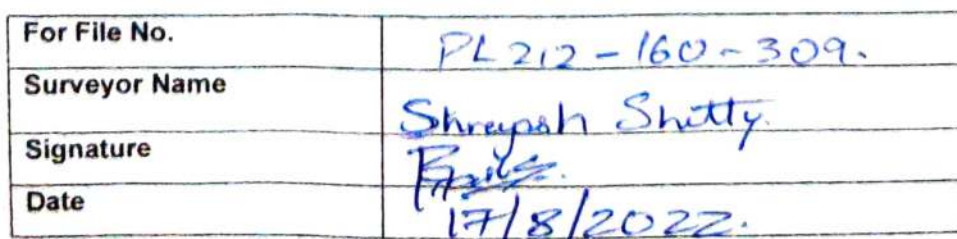 For File No. PL212-160-309.
Surveyor Name Shreyash Shetty.
Signature
Date 17/8/2022.